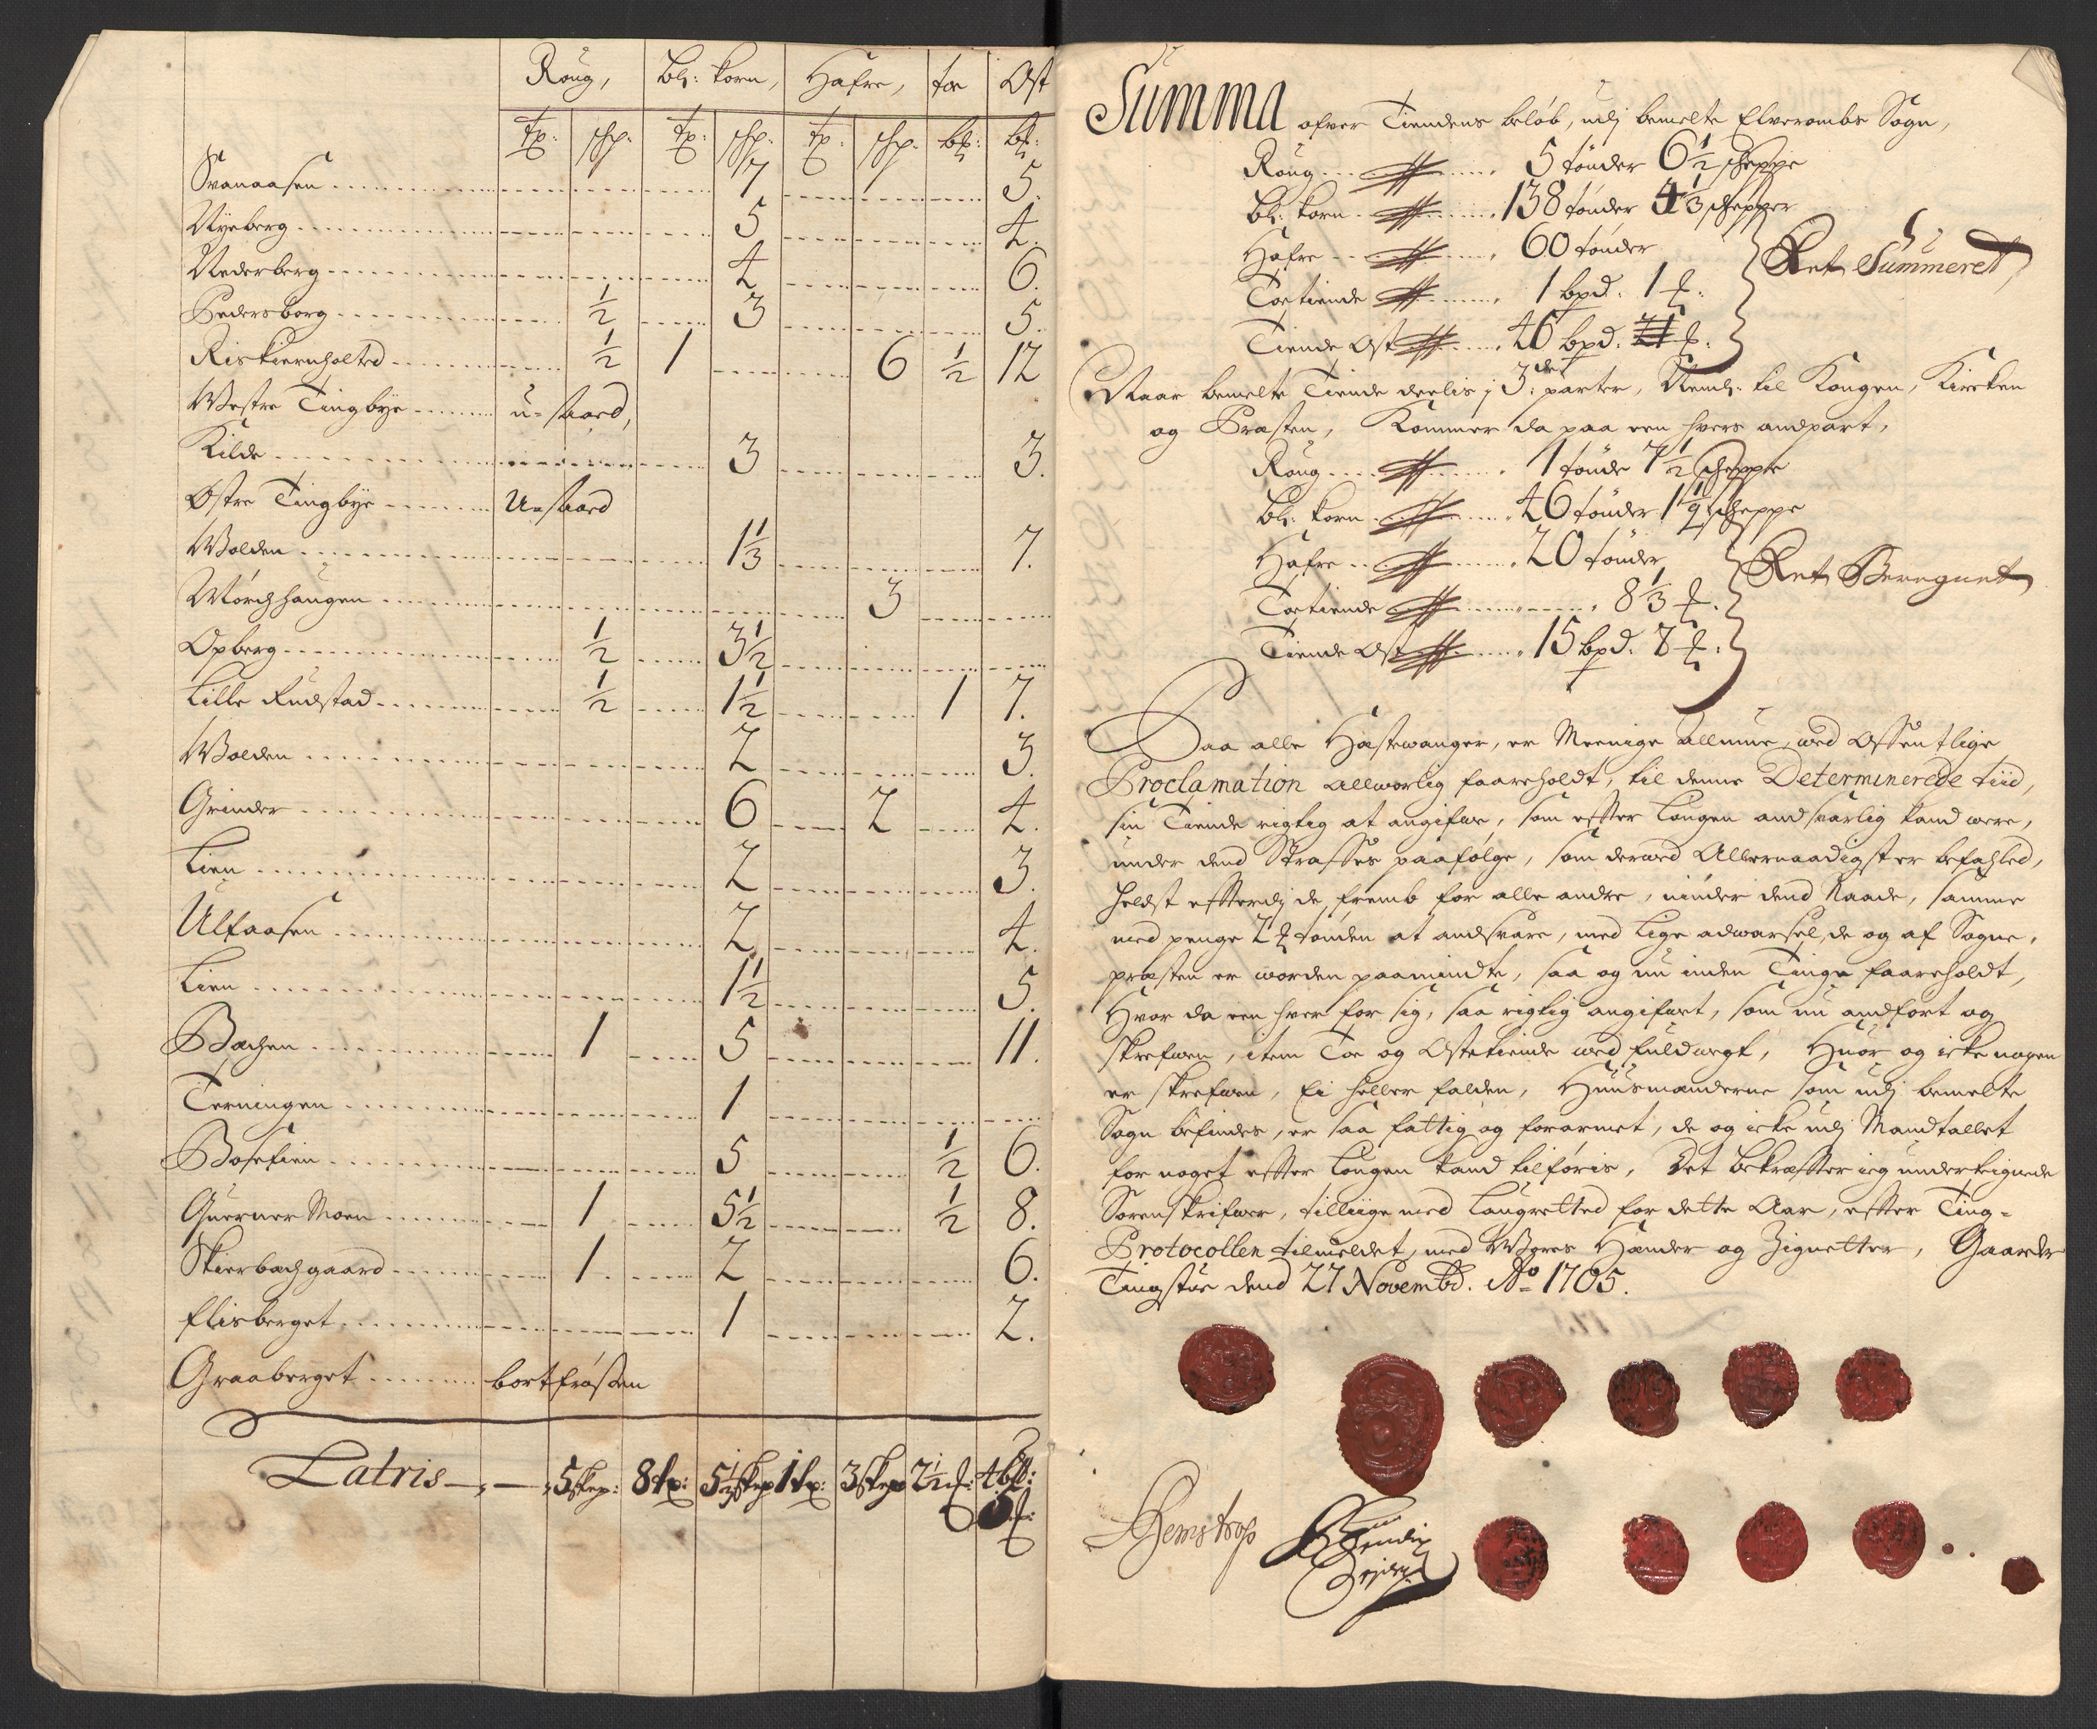 Roug, Bl: korn, Hafre, toe Ost
tr: schp: tr: schp: tr: schp: bt: bt:
Svanaasen 7 5.
Nyeberg 5 4.
Nederberg 4 6.
Pedersborg ½ 3 5.
Riskiernholted ½ 1 6 ½ 12
Westre Tingbye u-saaed,
Kilde 3 3.
Østre Tingbye U-saaed
Wolden 1⅓ 7.
Mørchhaugen 3
Opberg ½ 3½
Lille Rudstad ½ 1½ 1 7.
Wolden 2 3.
Grinder 6 2 4.
Lien 2 3.
Ulfaasen 2 4.
Lien 1½ 5.
Bachen 1 5 11.
Terningen 1
Bosefien 5 ½ 6.
Querner Moen 1 5½ ½ 8.
Skierbachgaard 1 2 6.
Flisberget 1 2.
Graaberget bortfrossen
Latris 5 skep: 8 tr: 5½ skep 1 tr: 3 skep 2½ 4 bp:
Summa ofver Tiendens beløb, udj bemelte Elverombs Sogn,
Roug 5 tønder 6½ scheppe
Bl: korn 138 tønder 4⅓ schepper
Hafre 60 tønder
Toetiende 1 bpd. 1
Tiende Ost 46 bpd.
Ret Summeret
Naar bemelte Tiende deelis j 3: det parter, Neml: til Kongen, Kircken
og Præsten, Kommer da paa een hvers andpart,
Roug 1 tønde 7½ scheppe
Bl: korn 46 tønder 1 1/9 scheppe
Hafre 20 tønder
Toetiende 8⅓
Tiende Ost 15 bpd. 8
Ret Beregnet
Paa alle Høstewanger, er Meenige Allmue, wed Offentlige
Proclamation allworlig faareholdt, til denne Determinerede tiid,
sin Tiende rigtig at angifwe, som efter Lougen andsvarlig kand were,
under dend Straffes paafølge, som derwed Allernaadigst er befahled,
helst efterdj de, fremb for alle andre, under dend Naade, samme
med penge 2 tønden at andsvare, med Lige adwarsel, de og af Sogne,
præsten er worden paamindte, saa og nu inden Tinge faareholdt,
Hvor da een hver for sig, saa rigtig angifwet, som nu andført og
skrefwen, item Toe og Ostetiende wed fuldwegt, Huor og icke nogen
er skrefwen, Ei heller falden, Huusmænderne som udj bemelte
Sogn befindes, er saa fattig og forarmet, de og icke udj Mandtallet
for noget efter Lougen kand tilføris, Det bekræfter ieg underteignede
Sorenskrifwer, tilliige med Laugretted for dette Aar, efter Ting-
Protocollen tilmeldet, med Wores Hænder og Zignetter, Gaarder
Tingstue dend 27 Novembd. Ao 1705.